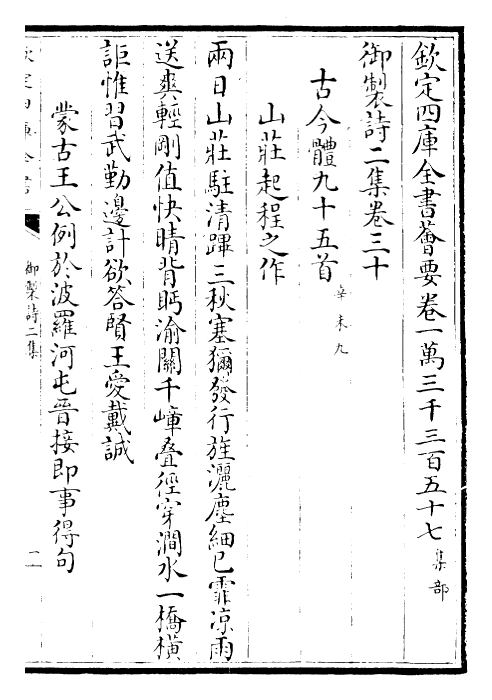 欽定四庫全書薈要卷一萬三千三百五十七 集部
御製詩二集卷三十
古今體九十五首 辛未九
山莊起程之作
兩日山莊駐清蹕三秋塞獮發行旌灑塵細已霏涼雨
送爽輕剛值快晴背眄渝關千嶂叠徑穿澗水一橋橫
詎惟習武勤邊計欲答賢王愛戴誠
蒙古王公例於波羅河屯晉接即事得句
御製詩二集